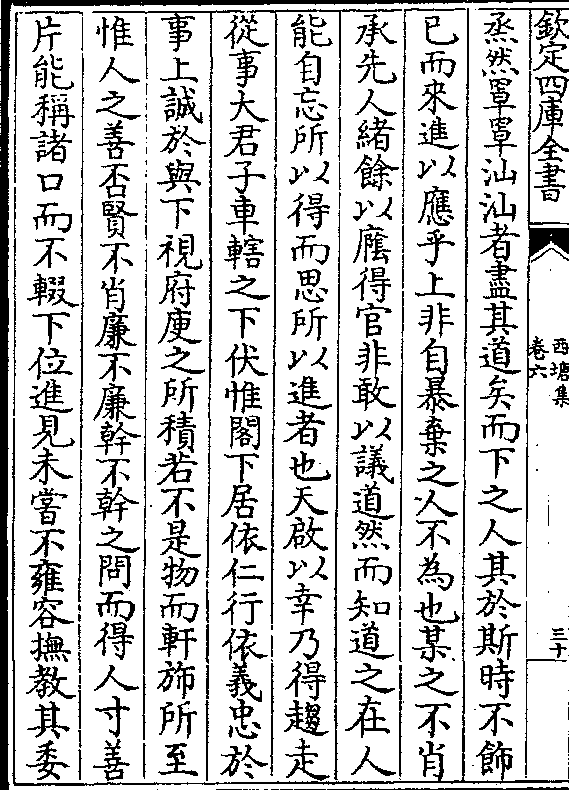 欽定四庫全書
西塘集
卷六
三十
烝然罩罩汕汕者盡其道矣而下之人其於斯時不飾
已而來進以應乎上非自暴棄之人不為也某之不肖
承先人緒餘以廕得官非敢以議道然而知道之在人
能自忘所以得而思所以進者也天啟以幸乃得趨走
從事大君子車轄之下伏惟閣下居依仁行依義忠於
事上誠於與下視府庾之所積若不是物而軒斾所至
惟人之善否賢不肖廉不廉幹不幹之問而得人寸善
片能稱諸口而不輟下位進見未嘗不雍容撫教其委